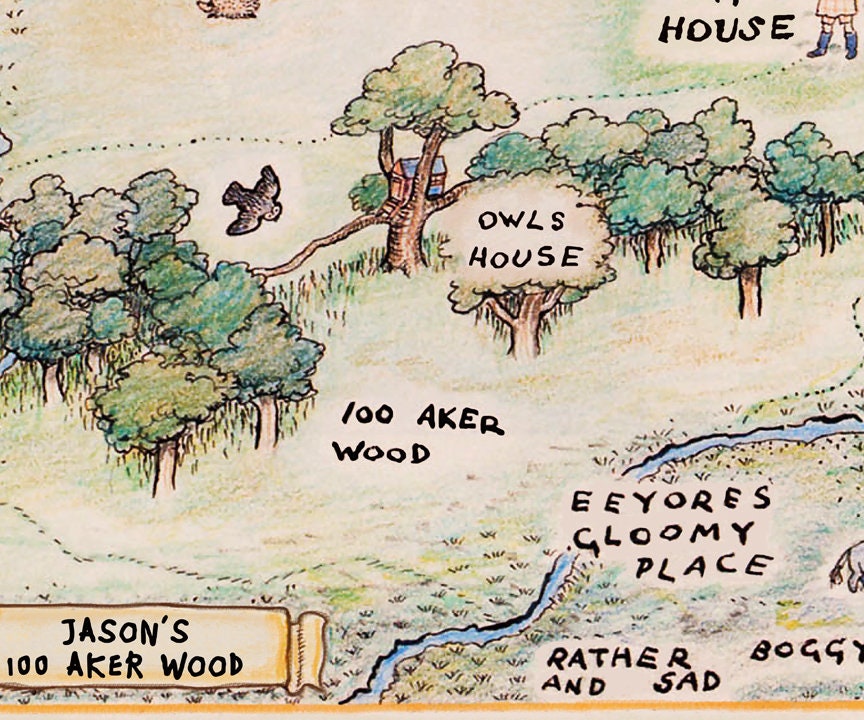 HOUSE
OWLS
HOUSE
100 AKER
WOOD
EEYORES
GLOOMY
PLACE
RATHER
AND SAD
BOGGY
JASON'S
100 AKER WOOD